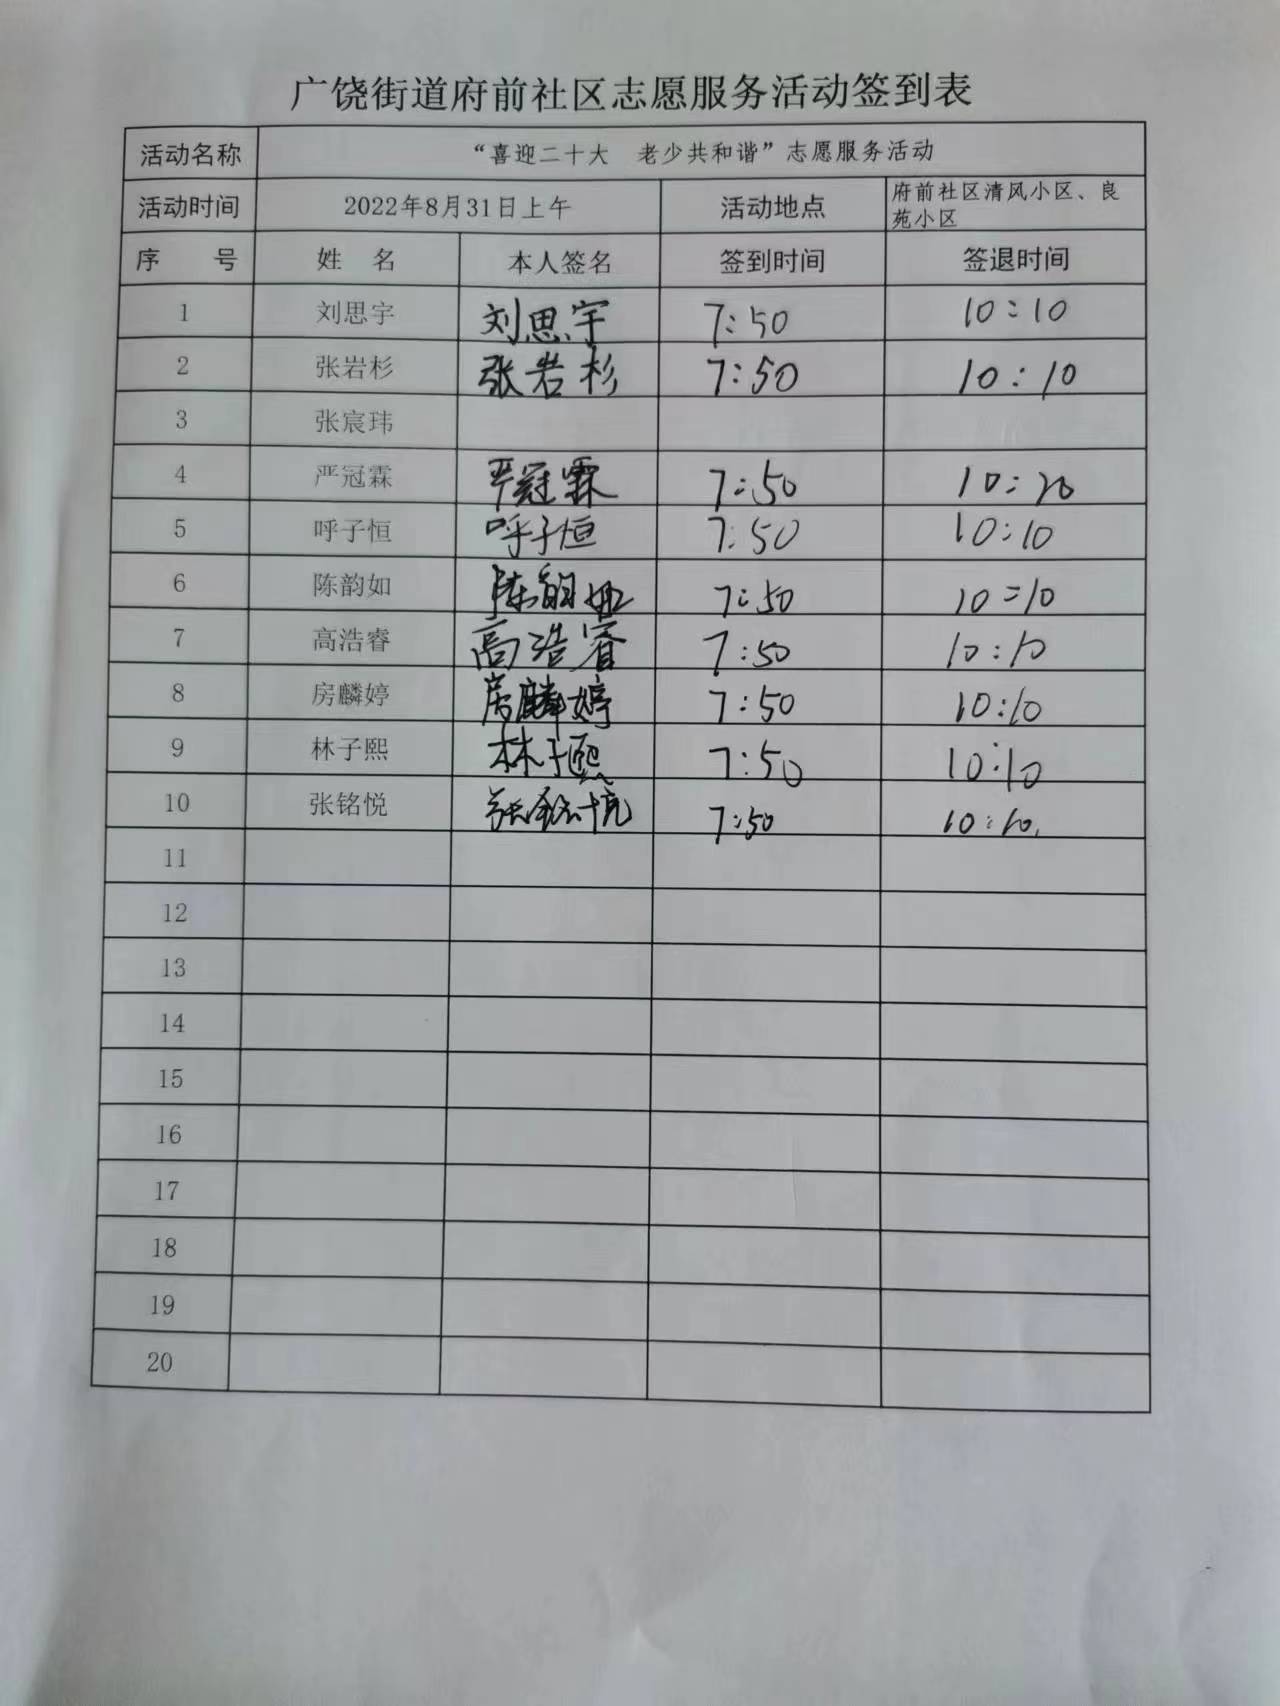 广饶街道府前社区志愿服务活动签到表
活动名称 “喜迎二十大 老少共和谐”志愿服务活动
活动时间 2022年8月31日上午 活动地点 府前社区清风小区、良
苑小区
序 号 姓 名 本人签名 签到时间 签退时间
1 刘思宇 刘思宇 7:50 10:10
2 张岩杉 张岩杉 7:50 10:10
3 张宸玮
4 严冠霖 严冠霖 7:50 10:20
5 呼子恒 呼子恒 7:50 10:10
6 陈韵如 陈韵如 7:50 10:10
7 高浩睿 高浩睿 7:50 10:10
8 房麟婷 房麟婷 7:50 10:10
9 林子熙 林子熙 7:50 10:10
10 张铭悦 张铭悦 7:50 10:10
11
12
13
14
15
16
17
18
19
20